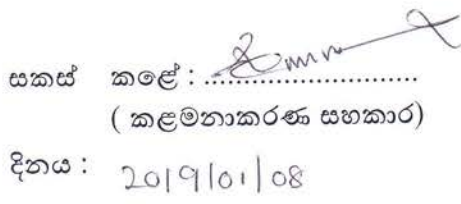 සකස් කළේ : ................................
( කළමනාකරණ සහකාර)
දිනය : 2019/01/08